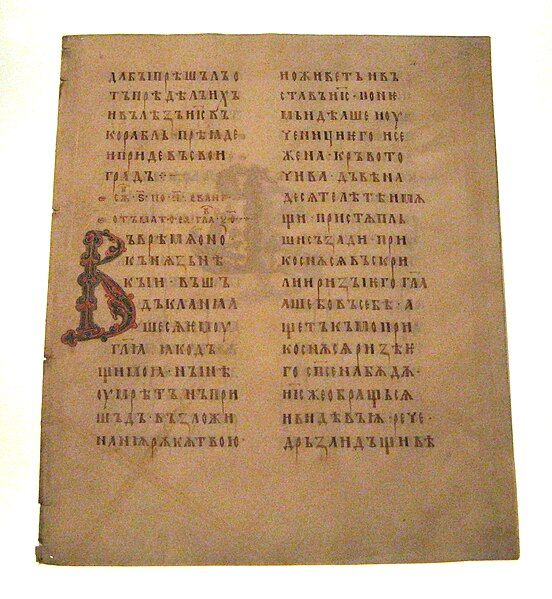 да бꙑ прѣшьлъ о
тъ прѣдѣлъ ихъ
и вълѣзъ іс҃ въ
корабль · прѣиде
и приде въ свои
градъ ·
въ врѣмѧ оно
кънѧзь нѣ
кꙑи · въшь
дъ кланꙗ
ше сѧ ѥмоу
гл҃ѧ ꙗко дъ
щи моꙗ нꙑнѣ
оумрѣтъ · нъ при
шьдъ · възложи
на нѭ рѫкѫ твою ·
и оживеть · и въ
ставъ іс҃ · по не
мь идѣаше · и оу
ченици ѥго · и се
жена · кръвото
чива · дъвѣ на
десѧте лѣтѣ имѫ
щи · пристѫпль
ши съзади · при
коснѫ сѧ въскри
лии ризъ ѥго · гл҃а
аше бо въ себѣ · а
ще тъкъмо при
коснѫ сѧ ризѣ ѥ
го · сп҃сена бѫдѫ ·
іс҃ же обращь сѧ
и видѣвъ ѭ · рече ·
дръзаи дъщи вѣ